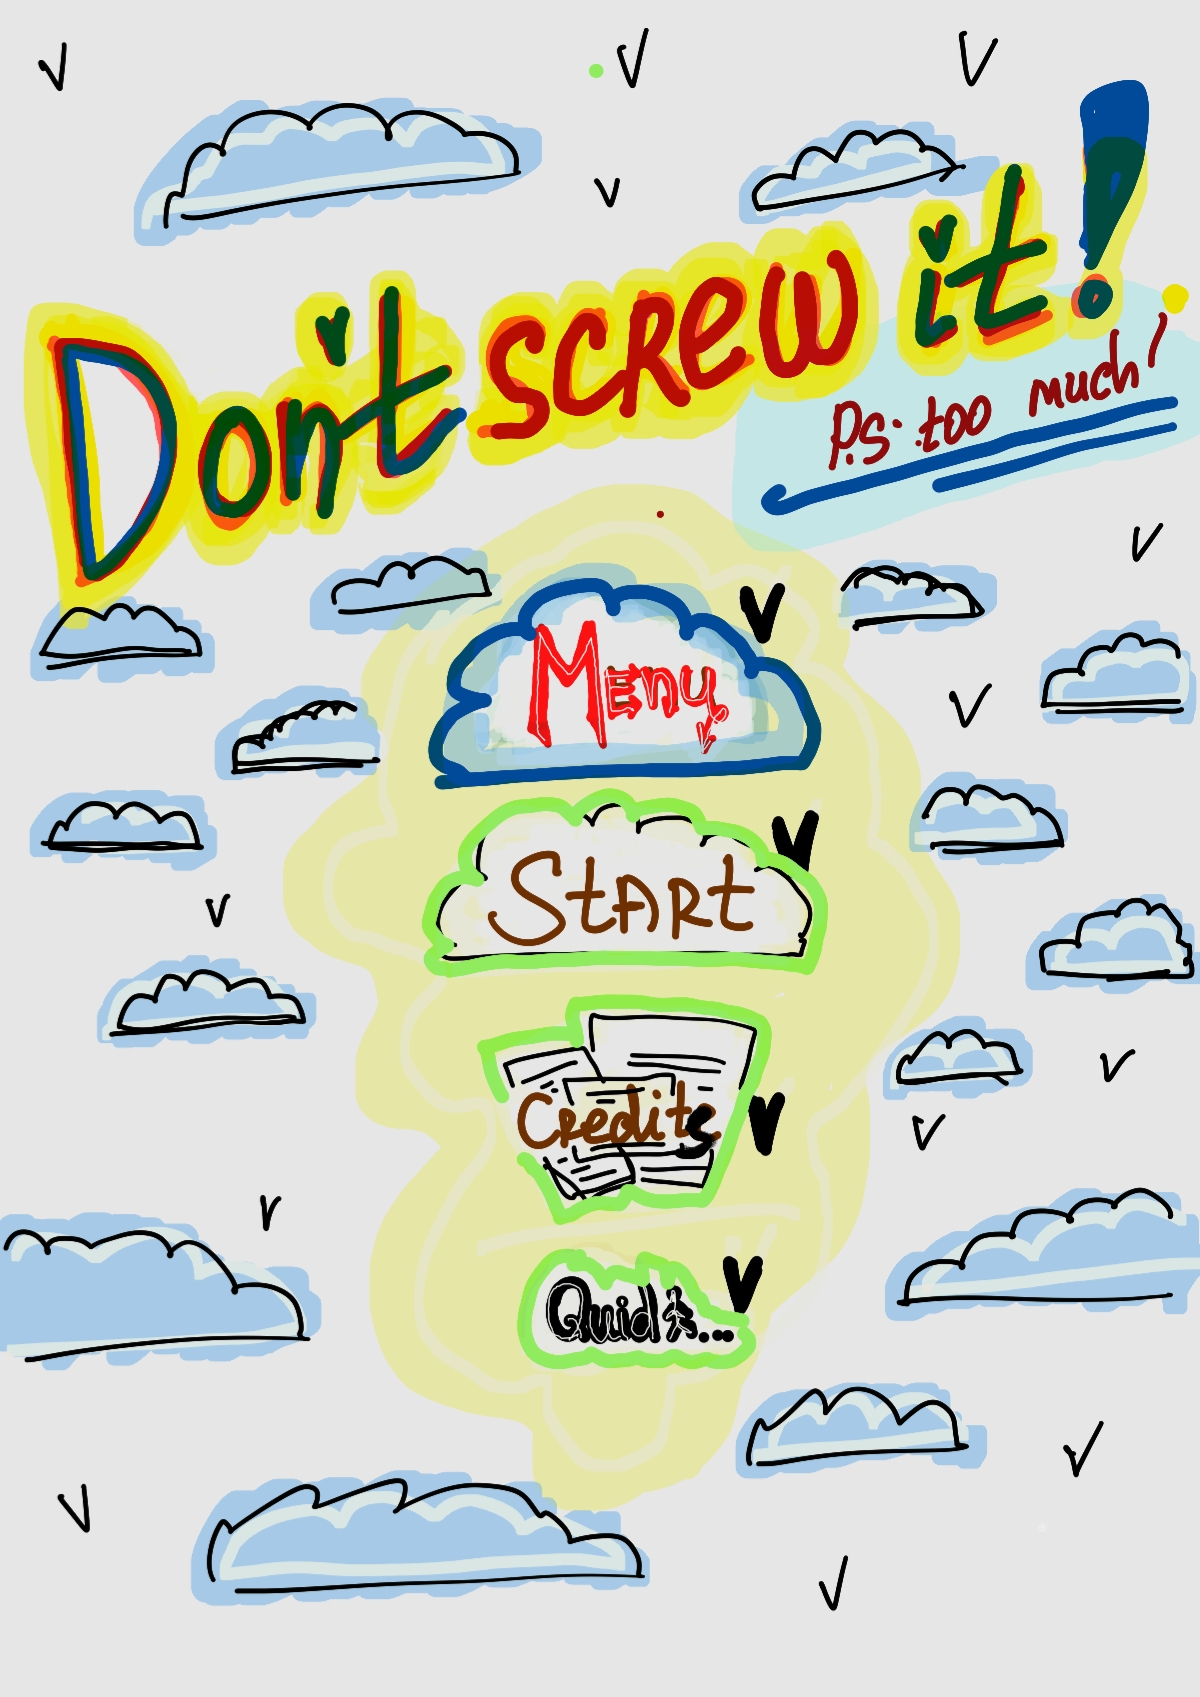 Don't screw it!
P.s. too much!
Menu
Start
Credits
Quid